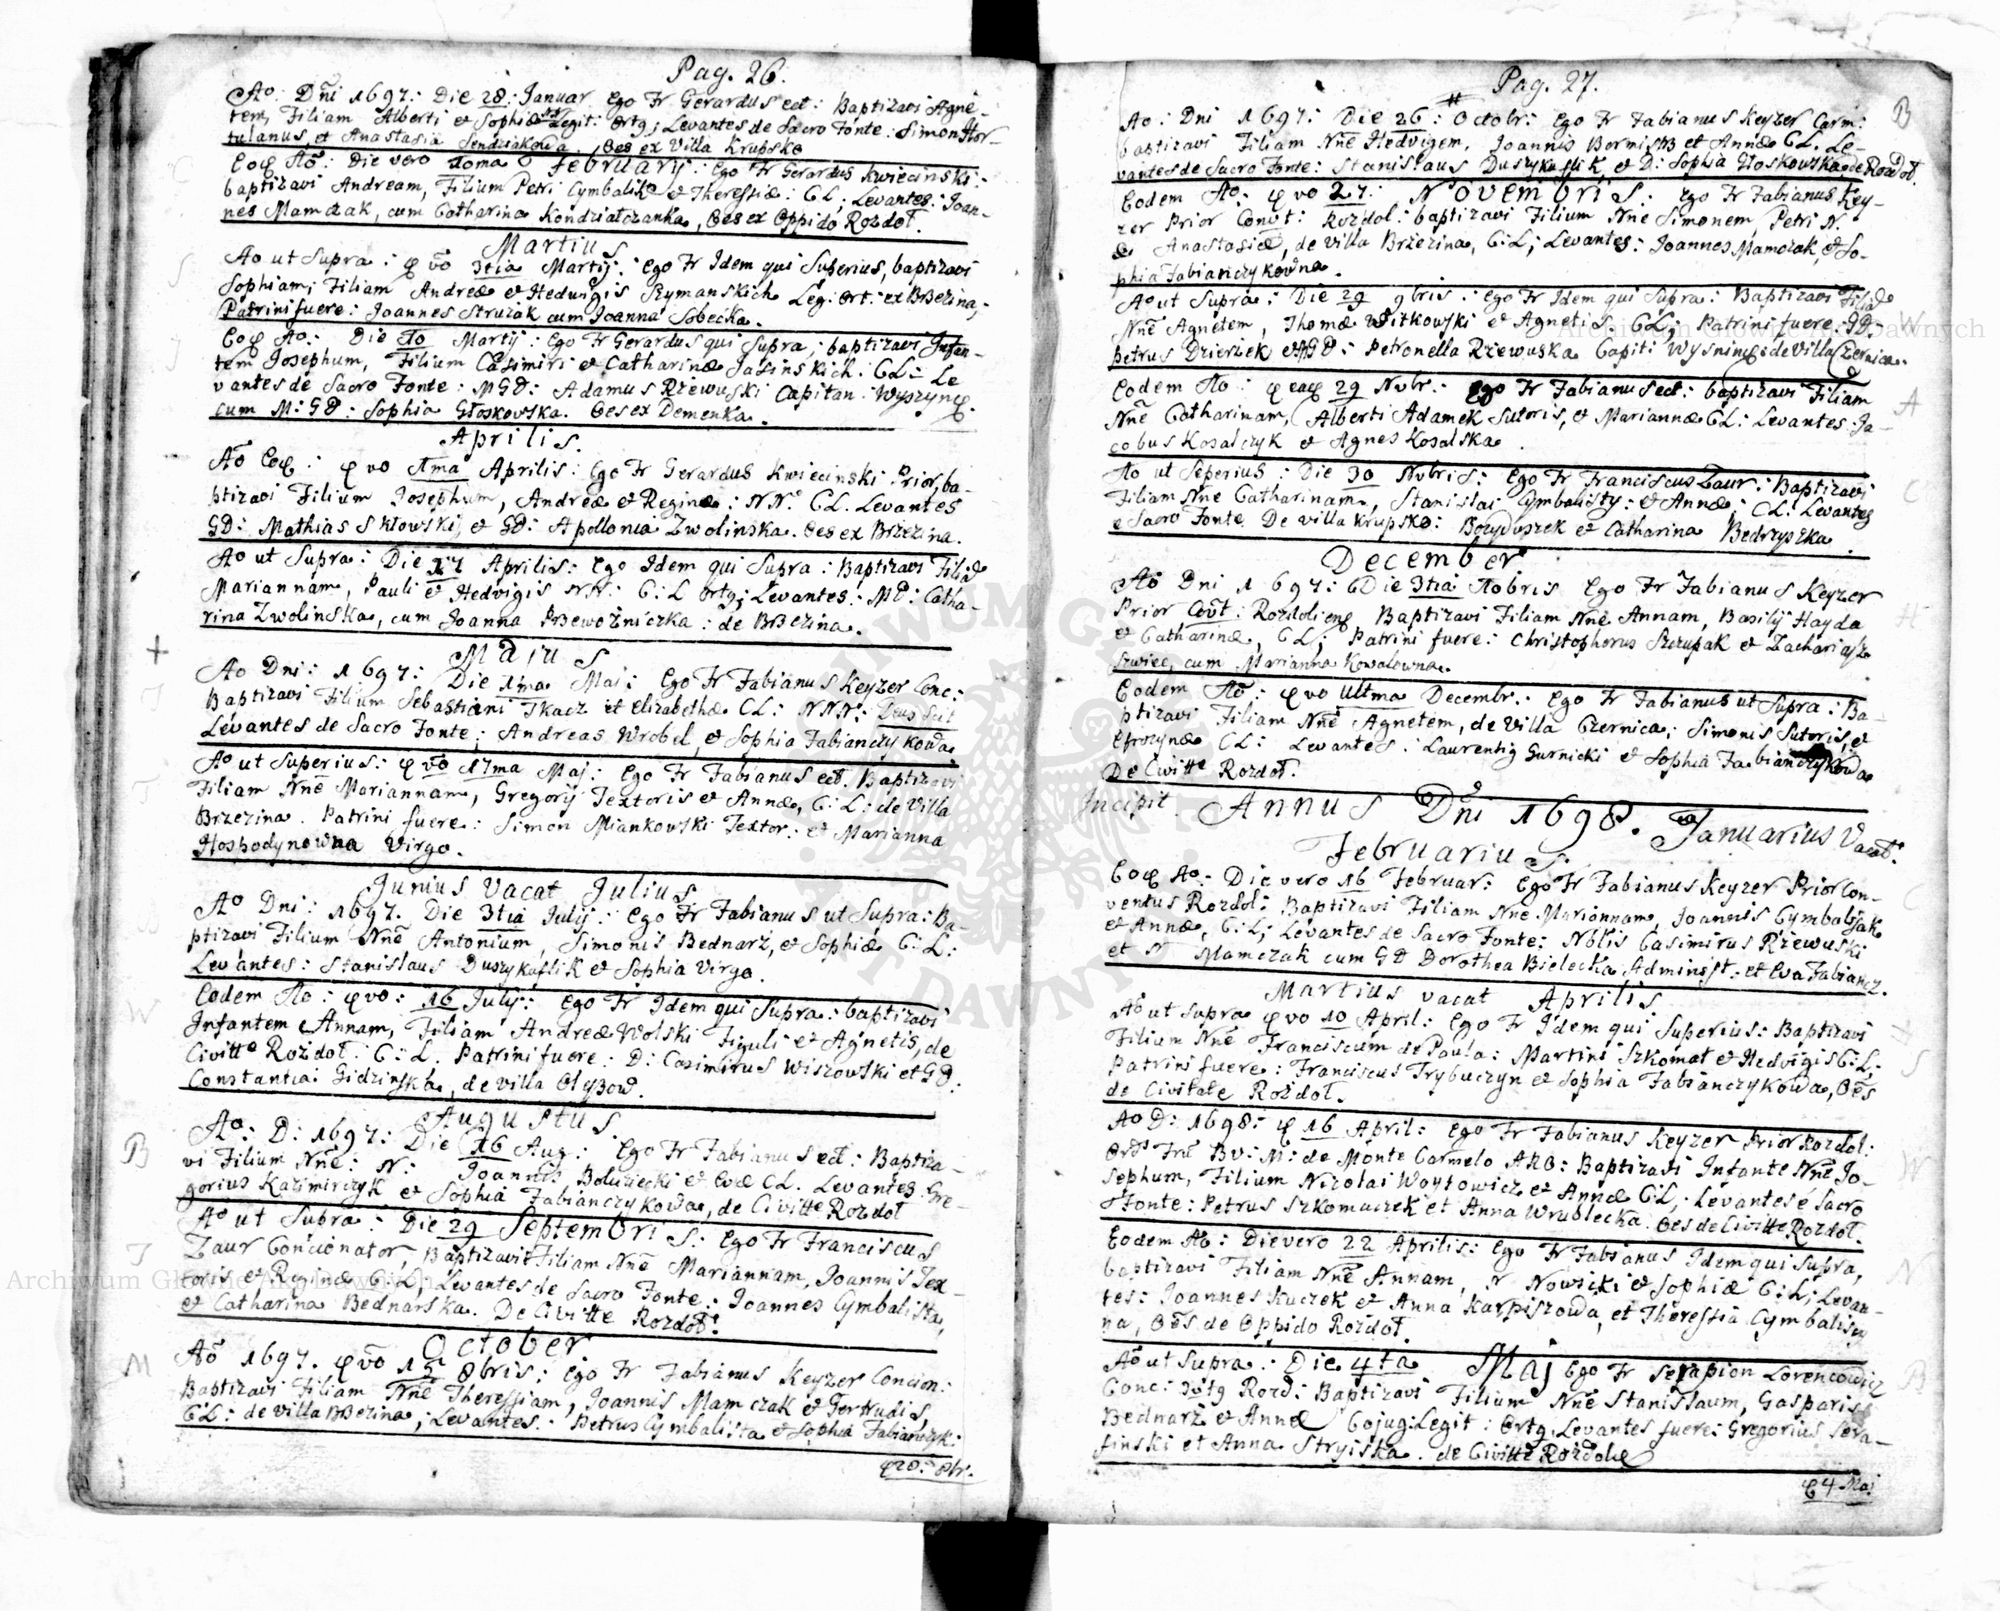 Pag. 26.
Ao: Dni 1697: Die 28: Januar Ego Fr Gerardus ect: Baptizavi Agne-
tem, Filiam Alberti et Sophiæ Legit: Ortg; Levantes de Sacro Fonte: Simon Hor-
tulanus, et Anastasia Sendziakowa. Oes ex Villa Krupsko
Eoq Ao: Die vero 10ma Februarij: Ego Fr Gerardus Kwiecinski:
baptizavi Andream, Filium Petri Cymbalistæ et Theressiæ: CL; Levantes: Joan-
nes Mamczak, cum Catharina Kondziałczanka, Oes ex Oppido Rozdoł.
Martius
Ao ut Supra: q vo 3tia Martij. Ego Fr Idem qui Superius, baptizavi
Sophiam, Filiam Andreæ et Hedvigis Szymanskich Leg: Ort: ex Brzezina,
Patrini fuere: Joannes Struzak cum Joanna Sobecka.
Eoq Ao: Die 10 Martij: Ego Fr Gerardus qui Supra, baptizavi Infan-
tem Josephum, Filium Casimiri et Catharinæ Jasinskich: CL: Le
vantes de Sacro Fonte: MGD: Adamus Rzewuski Capitan. Wyszynq.
cum M: GD: Sophia Głoskowska. Oes ex Demenka.
Aprilis.
Ao Eoq: q vo 11ma Aprilis: Ego Fr Gerardus Kwiecinski Prior, ba-
ptizavi Filium Josephum, Andreæ et Reginæ: NN. CL. Levantes
GD: Mathias Skłowski, et GD: Apollonia Zwolinska. Oes ex Brzezina.
Ao ut Supra: Die 27 Aprilis: Ego Idem qui Supra: Baptizavi Filiā
Mariannam, Pauli et Hedvigis NN: C: L Ortg; Levantes: MD: Catha-
rina Zwolinska, cum Joanna Przewozniczka: de Brzezina.
Majus
Ao Dni: 1697: Die 1ma Maj: Ego Fr Fabianus Keyzer Conc:
Baptizavi Filium Sebastiani Tkacz et Elizabethæ CL: NNN: Deus Scit
Levantes de Sacro Fonte; Andreas Wrobel, et Sophia Fabianczykowa
Ao ut Superius: q vo 17ma Maj: Ego Fr Fabianus ect. Baptizavi
Filiam Nne Mariannam, Gregorij Textoris et Annæ, C: L: de Villa
Brzezina. Patrini fuere: Simon Miankowski Textor: et Marianna
Hospodynowna Virgo.
Junius Vacat Julius
Ao Dni: 1697. Die 3tia July: Ego Fr Fabianus ut Supra: Ba-
ptizavi Filium Nne Antonium, Simonis Bednarz, et Sophiæ C: L:
Levantes: Stanislaus Duszykaslik et Sophia Virgo.
Eodem Ao: q vo: 16 July: Ego Fr Idem qui Supra: baptizavi
Infantem Annam, Filiam Andreæ Wolski Figuli et Agnetis, de
Civitte Rozdoł: C: L. Patrini fuere: D: Casimirus Wiszowski et GD:
Constantia Gidzinska, de villa
Augustus
Ao: D: 1697: Die 16 Aug: Ego Fr Fabianus ect: Baptiza-
vi Filium Nne: N: Joannis Boluziecki et Evæ CL. Levantes Gre-
gorius Kazimirczyk et Sophia Fabianczykowa, de Civitte Rozdoł
Ao ut Supra: Die 29 Septembris: Ego Fr Franciscus
Zaur Concionator, Baptizavit Filiam Nne Mariannam, Joannis Tex-
toris et Reginæ C: L; Levantes de Sacro Fonte: Joannes Cymbalista,
et Catharina Bednarska. De Civitte Rozdoł.
October
Ao 1697. q vo 15 8bris; Ego Fr Fabianus Keyzer Concion:
Baptizavi Filiam Nne Theressiam, Joannis Mamczak et Gertrudis,
C: L: de villa Brzezina; Levantes: Petrus Cymbalista et Sophia Fabianczyk:
Pag. 27.
Ao: Dni 1697: Die 26: Octobr: Ego Fr Fabianus Keyzer Carm:
baptizavi Filiam Nne Hedvigem, Joannis et Annæ CL. Le-
vantes de Sacro Fonte: Stanislaus Duszykaslik, et D: Sophia Głoskowska, de Rozdoł.
Eodem Ao: q vo 27: Novembris: Ego Fr Fabianus Key-
zer Prior Convt: Rozdol: baptizavi Filium Nne Simonem, Petri N.
& Anastasiæ, de villa Brzezina, C: L; Levantes: Joannes Mamczak, et So-
phia Fabianczykowna.
Ao ut Supra: Die 29 9bris: Ego Fr Idem qui Supra: Baptizavi Filiā
Nne Agnetem, Thomæ Witkowski et Agnetis. CL; Patrini fuere: GD:
Petrus Dzierzek et MGD: Petronella Rzewuska Capiti Wysninq: de Villa Czernica.
Eodem Ao: q eaq 29 Nvbr: Ego Fr Fabianus ect: baptizavi Filiam
Nne Catharinam, Alberti Adamek Sutoris, et Mariannæ CL: Levantes Ja-
cobus Kosalczyk et Agnes Kosalska.
Ao ut Seperius: Die 30 Nvbris: Ego Fr Franciscus Zaur: Baptizavi
Filiam Nne Catharinam, Stanislai Cymbalisty: et Annæ; CL: Levantes
e Sacro Fonte De villa Krupsko: et Catharina Bedrzyszka.
December
Ao Dni 1697: Die 3tia Xobris Ego Fr Fabianus Keyzer
Prior Covt: Rozdolieng Baptizavi Filiam Nne Annam, Basilij Hayda
et Catharinæ, CL; Patrini fuere: Christophorus Szczupak et Zacharijasz
Szwiec, cum Marianna Kowalowna.
Eodem Ao: q vo Ultma Decembr: Ego Fr Fabianus ut Supra: Ba-
ptizavi Filiam Nne Agnetem, de Villa Czernica, Simonis Sutoris, et
Efrozynæ CL: Levantes: Laurentig Gurnicki et Sophia Fabianczykowa
De Civitte Rozdoł.
Incipit Annus Dni 1698. Januarius Vacat.
Februarius.
Eoq Ao: Die vero 16 Februar: Ego Fr Fabianus Keyzer Prior Con-
ventus Rozdol: Baptizavi Filiam Nne Mariannam, Joannis Cymbalistak
et Annæ, C: L; Levantes de Sacro Fonte: Nblis Casimirus Rzewuski
et N Mamczak cum GD Dorothea Bielecka Administ. et Eva Fabiancz.
Martius vacat Aprilis
Ao ut Supra q vo 10 April: Ego Fr Idem qui Superius: Baptizavi
Filium Nne Franciscum de Paula: Martini Szkomat et Hedvigis C: L;
Patrini fuere: Franciscus Trybuczyn et Sophia Fabianczykowa, Oes
de Civitate Rozdoł.
Ao D: 1698: q 16 April: Ego Fr Fabianus Keyzer Prior Rozdol:
Ords Frm Bv: M: de Monte Carmelo ARO: Baptizavi Infante Nne Jo-
sephum, Filium Nicolai Woytowicz et Annæ C: L; Levantes é Sacro
Fonte: Petrus Szkomaczek et Anna Wrublecka. Oes de Civitte Rozdoł.
Eodem Ao: Die vero 22 Aprilis: Ego Fr Fabianus Idem qui Supra,
baptizavi Filiam Nne Annam, N Nowicki et Sophiæ C: L; Levan-
tes: Joannes Kuczek et Anna Karpiszowa, et Theressia Cymbaliscz
na, Oes de Oppido Rozdoł.
Ao ut Supra: Die 4ta Maj Ego Fr Serapion Lorencowicz
Conc: Rozd: Baptizavi Filium Nne Stanislaum, Gasparis
Bednarz et Annæ Cojug: Legit: Ortg. Levantes fuere: Gregorius Sera-
finski et Anna Stryiska. de Civitte Rozdoł
q 4 Maj
Archiwum Główne Akt Dawnych